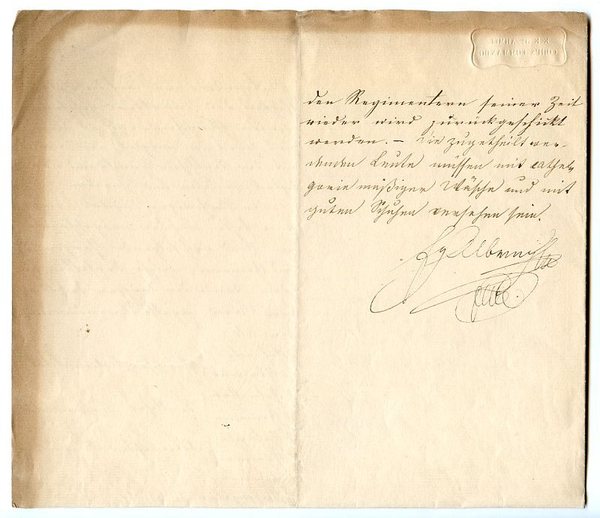 den Regimentern seiner Zeit
wieder wird zurückgeschickt
werden. — Die zugetheilt wer-
denden Leute müssen mit cathe-
gorie mäßiger Wäsche und mit
guten Schuhen versehen sein.
Albrecht